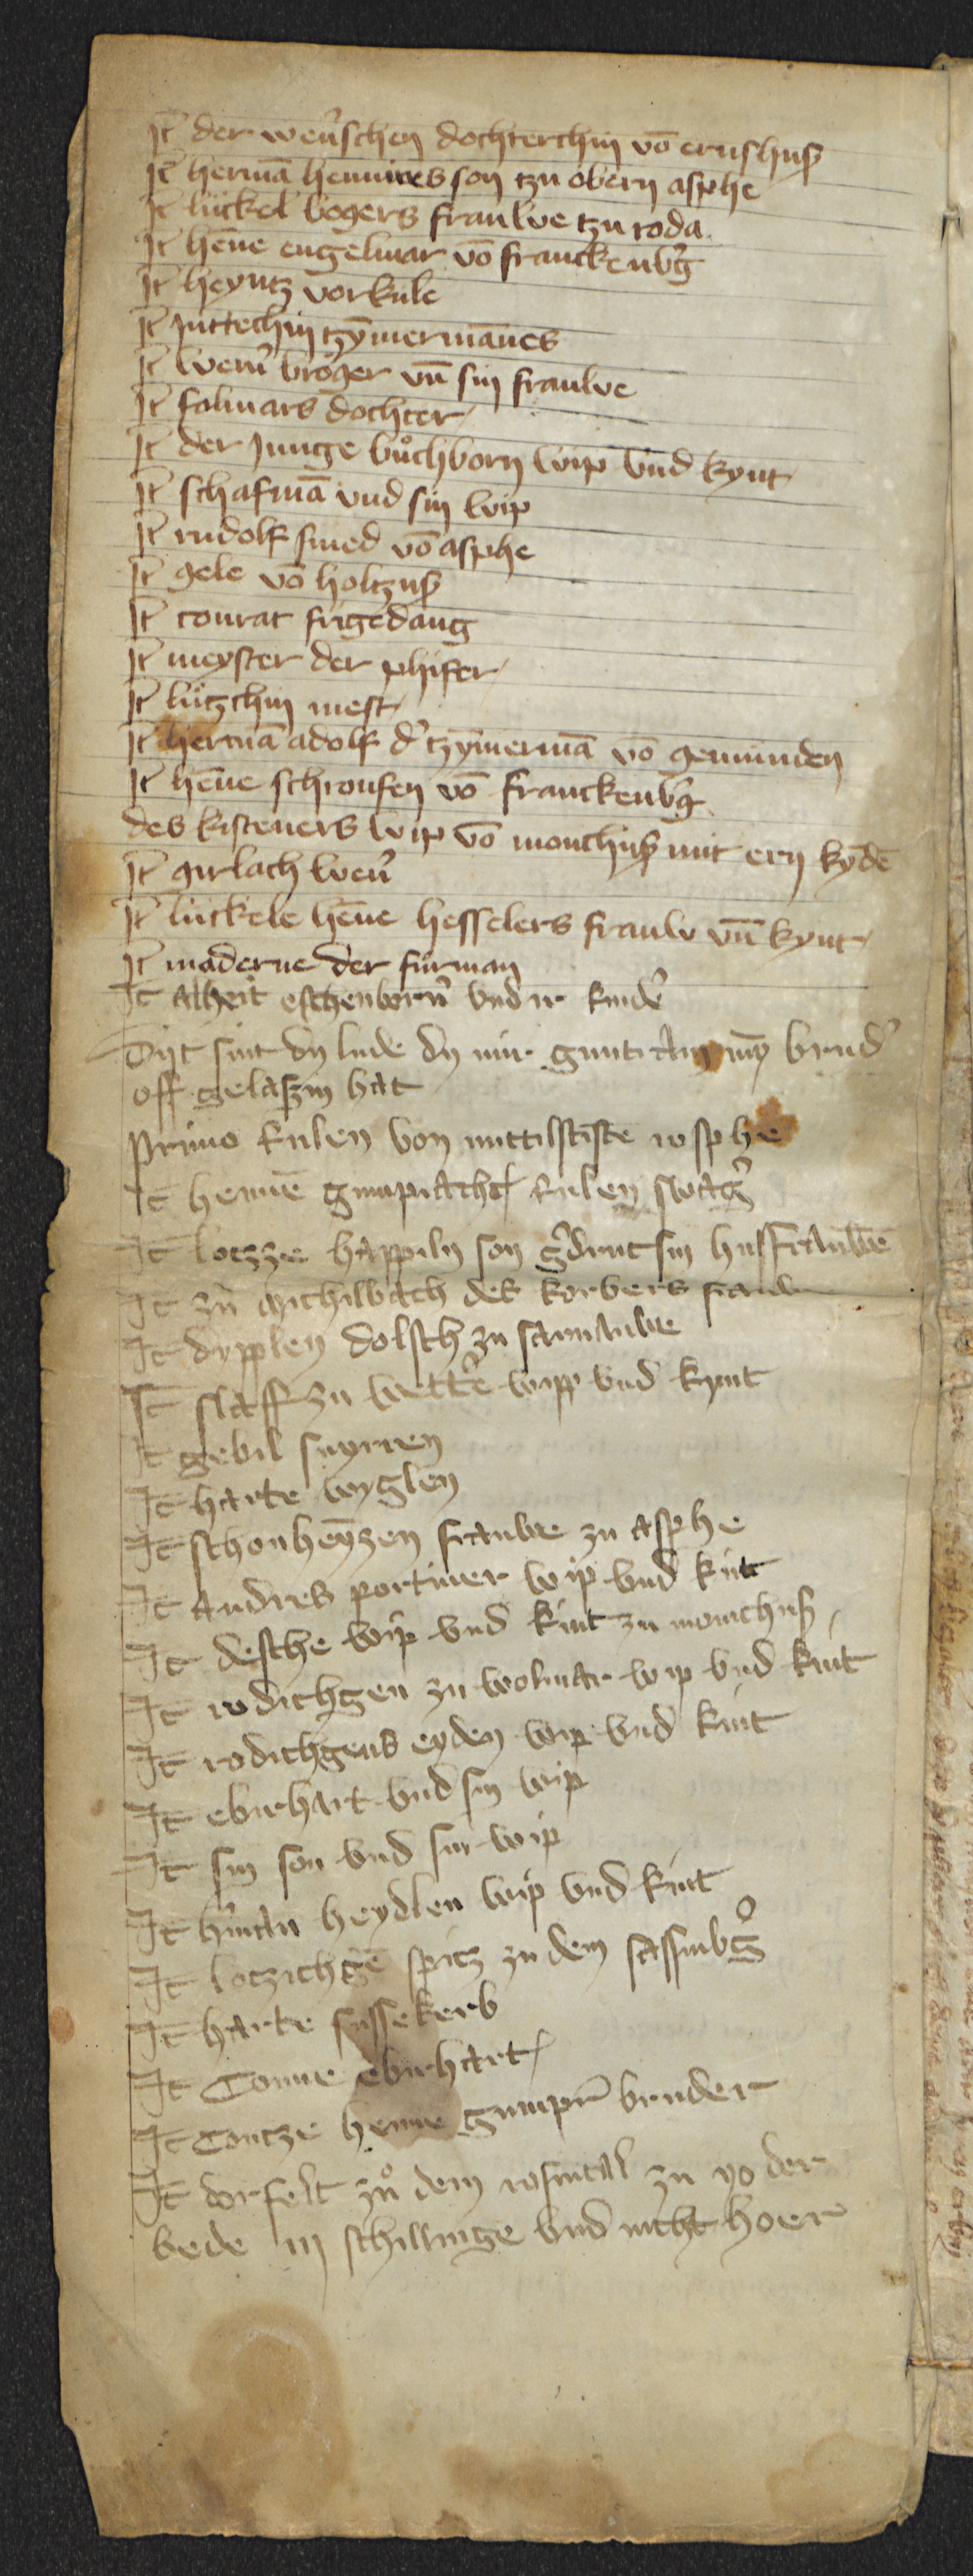 It der wen᷑schen dochterchin vō ernshuß
It hermā hennīces son tzu obern asphe
It luckel bogers frauwe tzu roda
It hēne engelmar vō franckenb᷑g
It heyntz vorkule
It Juttechin tzȳmermānes
It wern᷑ broger vn̄ sin frauwe
It folmars dochter
It der Junge bůchborn wip vnd kynt
It schafmā vnd sin wip
It rudolf smed vō asphe
It gele vō holtzuß
It conrat frigedang
It meyster der phifer
It lůtzchin mest
It hermā adolf d᷑ tzȳmermā vō gemunden
It hēne schroufen vō franckenb᷑g
des kisteners wip vō monchuß mit ern kȳdē
It girlach wen᷑
It luckele hēne hesselers frauw vn̄ kynt
It maderne der furman
It Alheit eschenborn᷑ vnd ir kind᷑
Dyt sint dy lude dy mir guntram mȳ brud᷑
off gelaßin hat
Primo kulen von mittilstiste rosphe
It hennē gumpracht kulen swag᷑
It lotzze happiln son g᷑drut sin husfrauwe
It zu michilbach des korbers frauwe
It dypplen dolsch zu sarnauwe
It slaff zu wett᷑e wipp vnd kynt
It gebil snyrren
It harte wyglen
It schonheyzen frauwe zu asphe
It andres portiner wip vnd kint
It desche wip vnd kint zu monchuß
It rodichgen zu wolmar wip vnd kint
It rodichgens eyden wip vnd kint
It ebirhart vnd sin wip
It sin son vnd sin wip
It h᷑man heydlen wip vnd kint
It lotzichgē spicz zu dem sassinb᷑g
It harte sussekerb
It Conne ebirhart
It Contze henne gumpr᷑ bruder
It dorfelt zů dem rosintal zu yo der
bede iij schillinge vnd nicht hoer